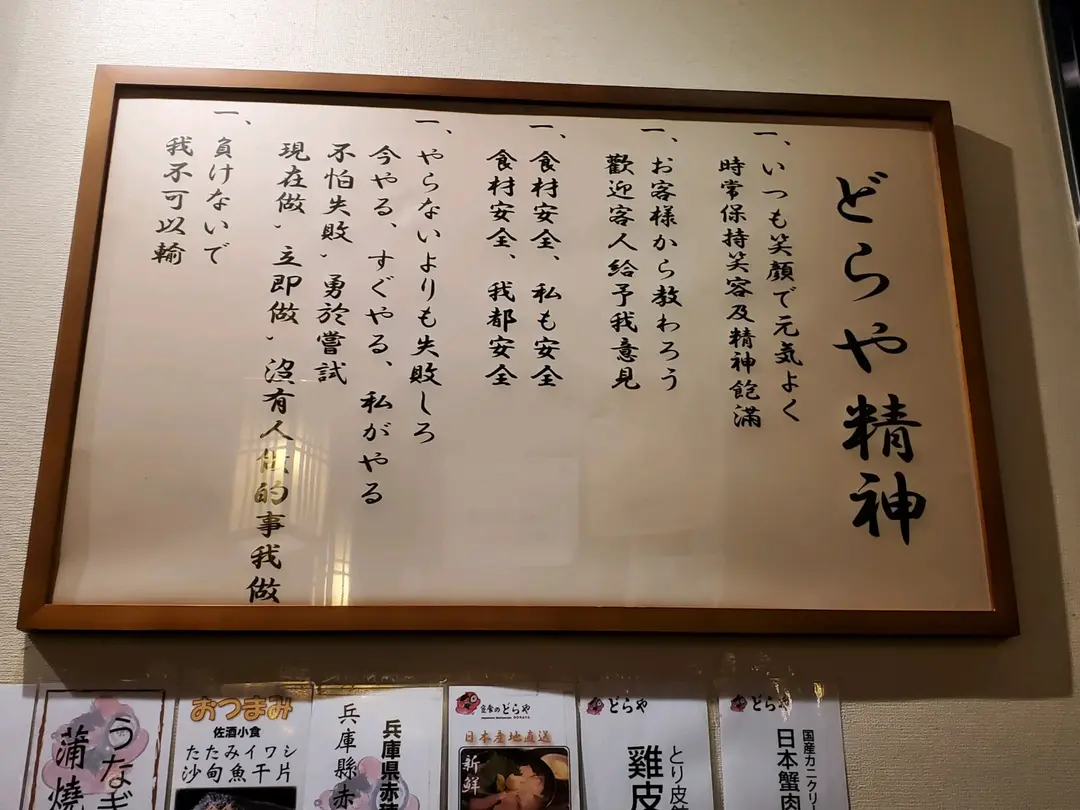 どらや精神
一、いつも笑顔で元気よく
時常保持笑容及精神飽滿
一、お客様から教わろう
歡迎客人給予我意見
一、食材安全、私も安全
食材安全、我都安全
一、やらないよりも失敗しろ
今やる、すぐやる、私がやる
不怕失敗、勇於嘗試
現在做、立即做、沒有人做的事我做
一、負けないで
我不可以輸
うなぎ
蒲燒
おつまみ
佐酒小食
たたみイワシ
沙甸魚干片
兵庫県赤
兵庫縣赤
定食のどらや
日本産地直送
新鮮
どらや
とり皮
雞皮
どらや
国産カニクリー
日本蟹肉